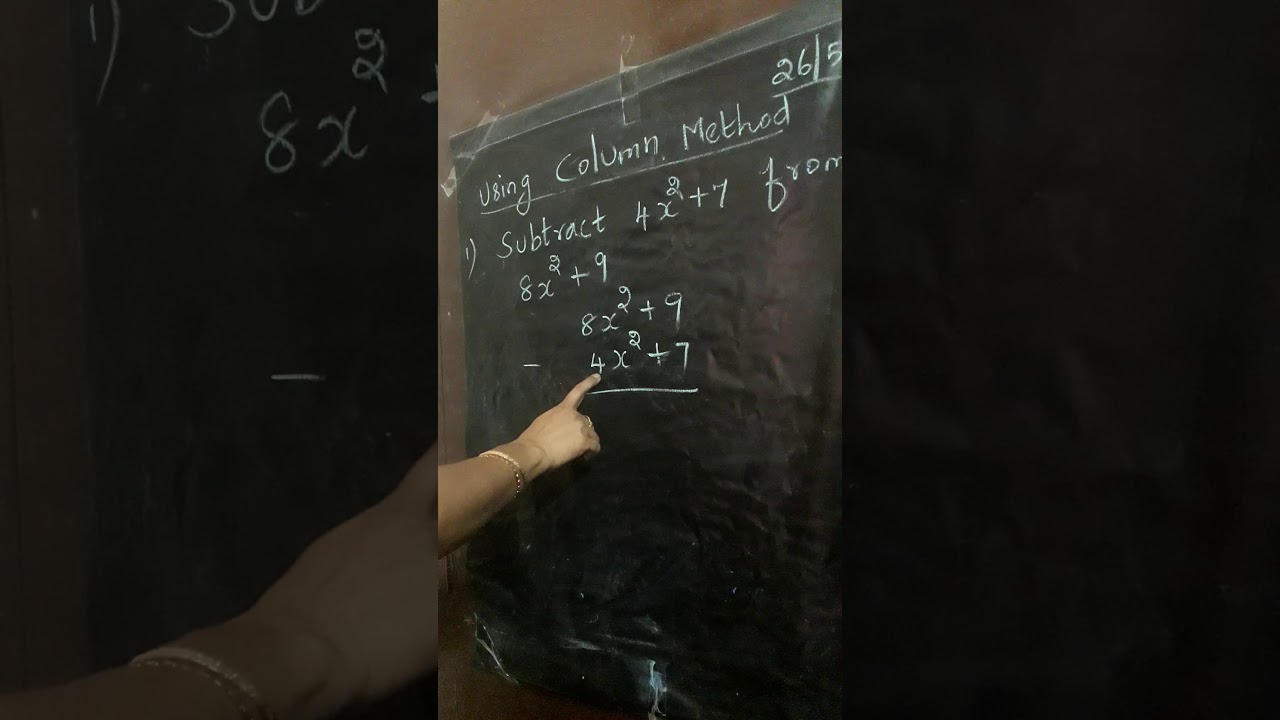 26/5
Using Column Method
1) Subtract 4x²+7 from
8x²+9
8x²+9
- 4x²+7